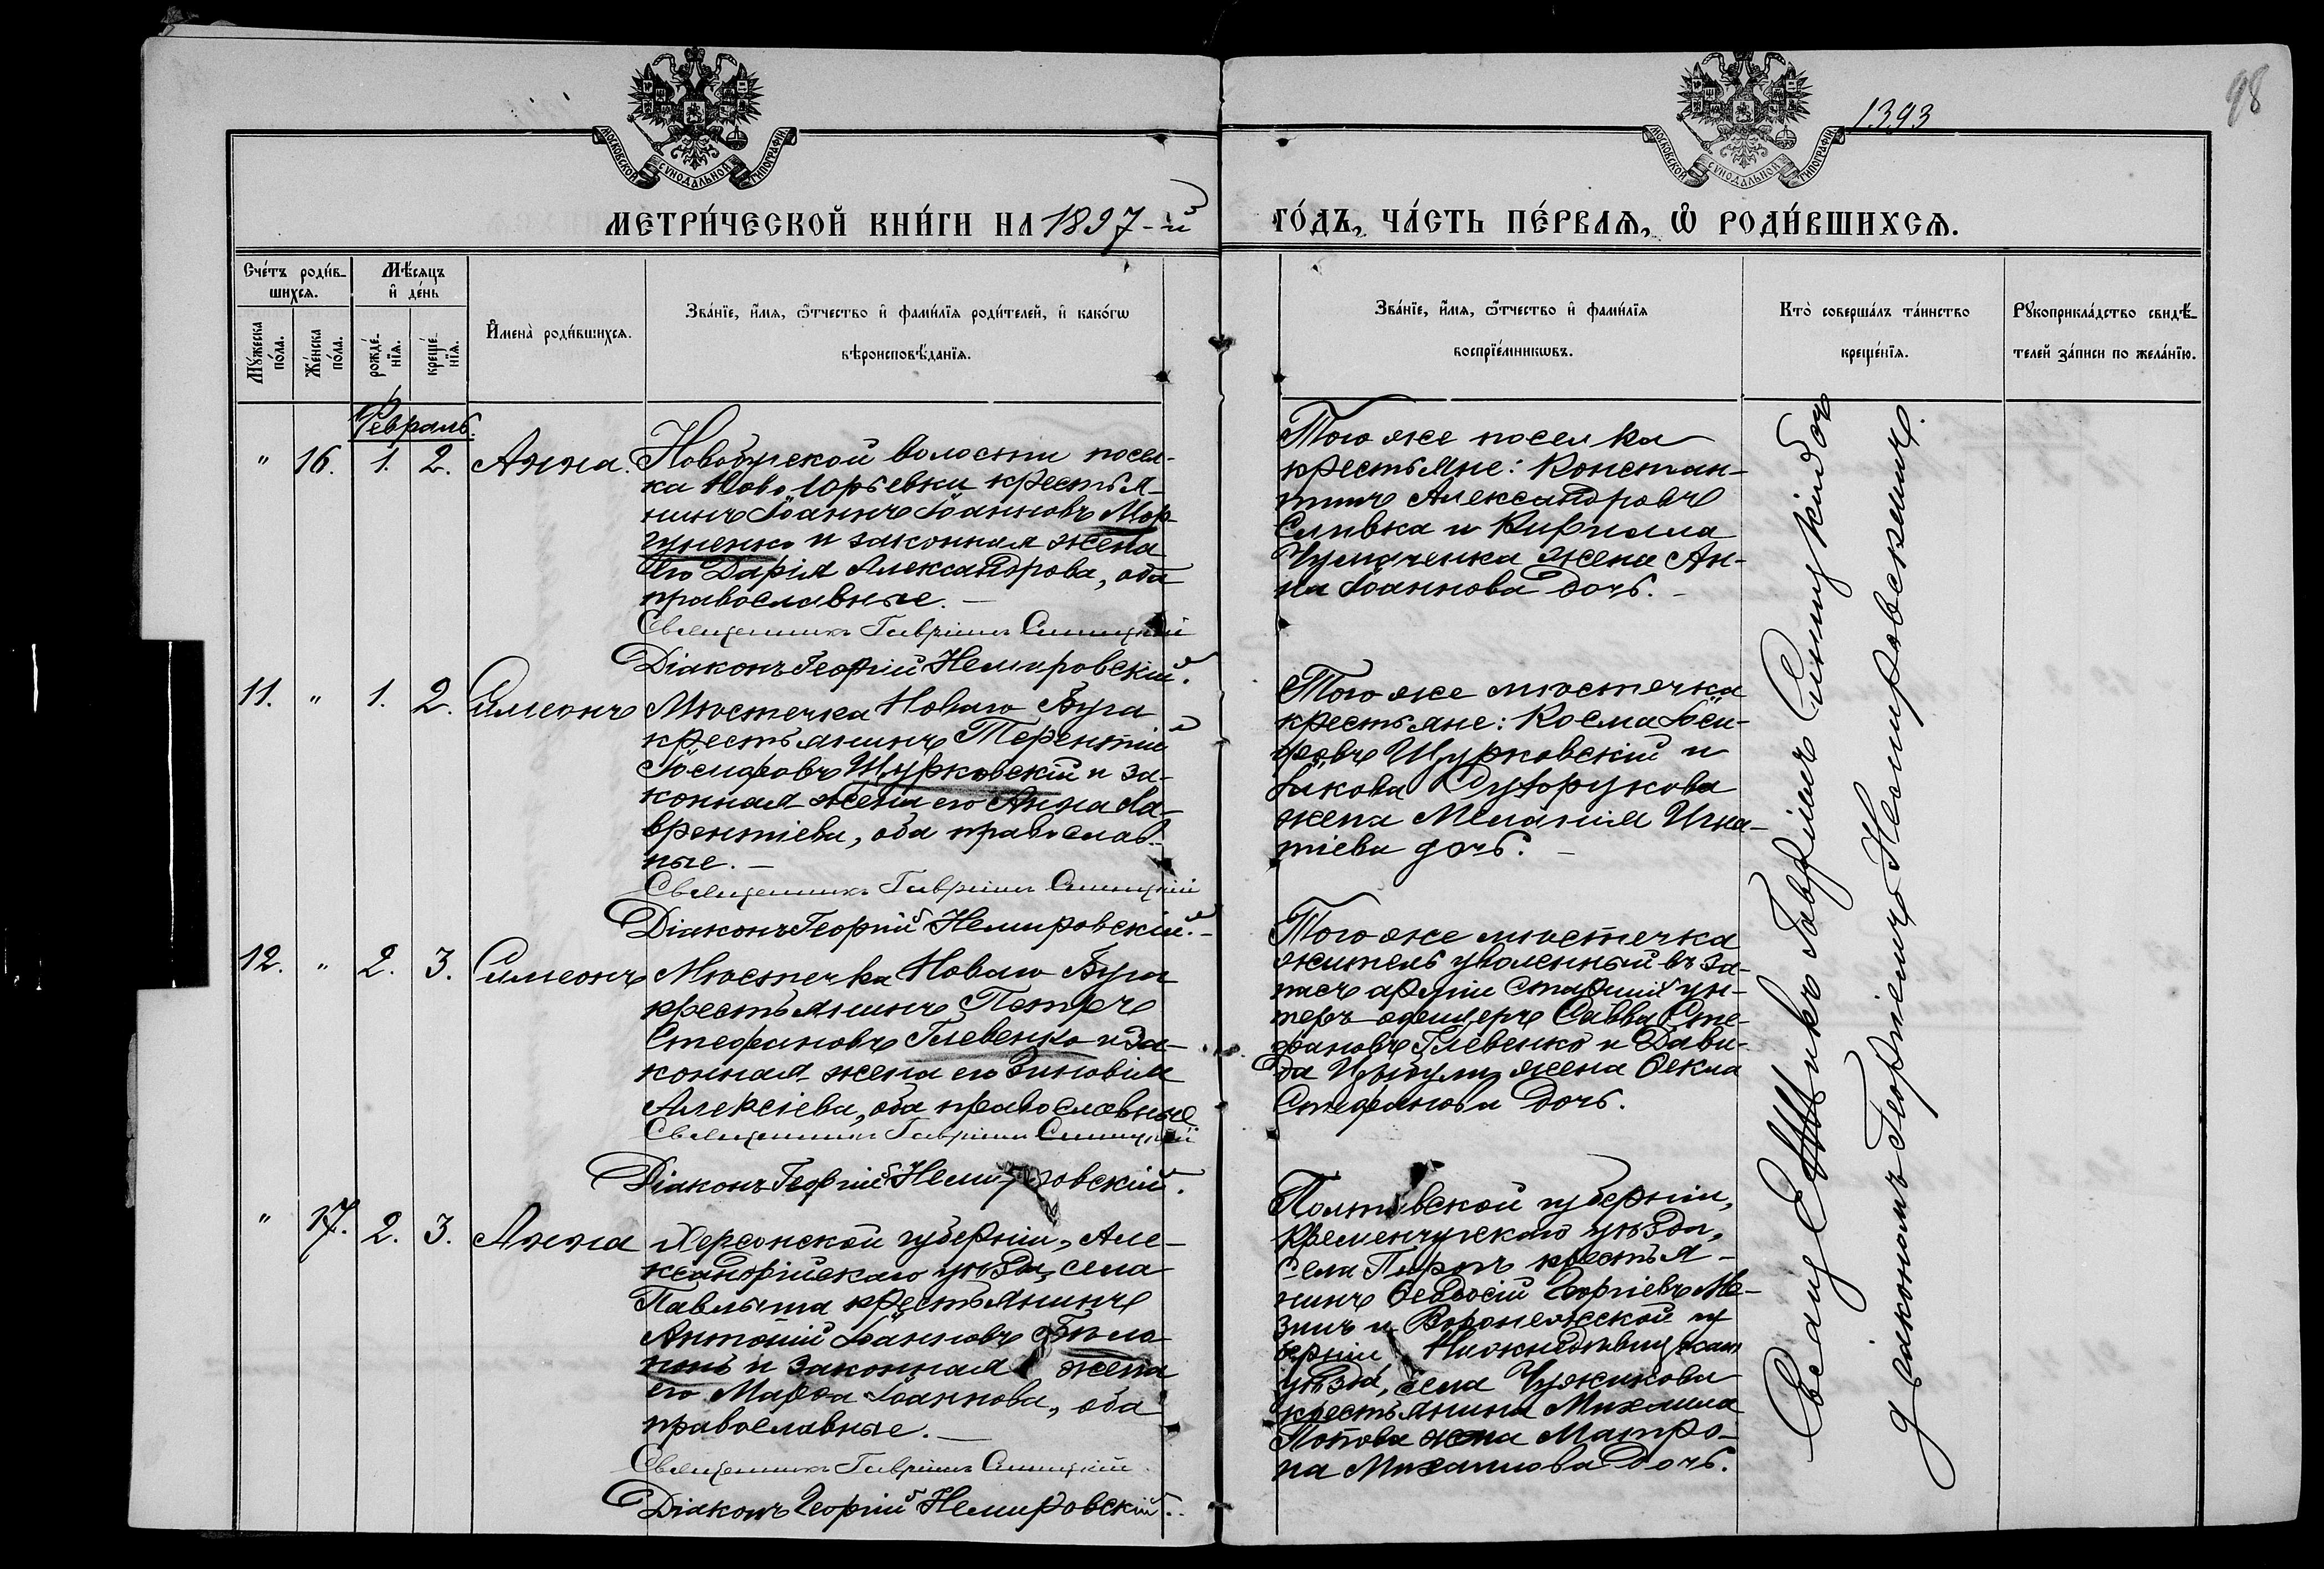 98
1393
МОСКОВСКОЙ СѴНОДАЛЬНОЙ ТИПОГРАФІИ
МОСКОВСКОЙ СѴНОДАЛЬНОЙ ТИПОГРАФІИ
МЕТРИ́ЧЕСКОЙ КНИ́ГИ НА 1897-й ГО́ДЪ, ЧА́СТЬ ПЕ́РВАЯ, Ѿ РОДИ́ВШИХСЯ.
Сче́тъ роди́в-
шихся.
Му́жеска по́ла.
Же́нска по́ла.
Мѣ́сяцъ
и де́нь
рожде́-
нїя.
креще́-
нїя.
Имена̀ роди́вшихся.
Зва́нїе, и́мя, ѻ́тчество и фами́лїя роди́телей, и како́гѡ
вѣроисповѣ́данїя.
Зва́нїе, и́мя, ѻ́тчество и фами́лїя
воспрїе́мникѡвъ.
Кто̀ соверша́лъ та́инство
креще́нїя.
Рꙋкоприкла́дство свидѣ́-
телей за́писи по жела́нїю.
Февраль.
" 16. 1. 2. Анна.
Новобугской волости посел-
ка Ново Юрьевки крестья-
нинъ Іоаннъ Іоанновъ Мор-
гуненко и законная жена
его Дарія Александрова, оба
православные. —
Священникъ Гавріилъ Синицкій
Діаконъ Георгій Немировскій.
Того же поселка
крестьяне: Констан-
тинъ Александровъ
Сливка и Кирилла
Чумаченка жена Ан-
на Іоаннова дочь. —
11. " 1. 2. Симеонъ
Мѣстечка Новаго Буга
крестьянинъ Терентій
Іосифовъ Щурковскій и за-
конная жена его Анна Ла-
врентіева, оба православ-
ные. —
Священникъ Гавріилъ Синицкій
Діаконъ Георгій Немировскій. —
Того же мѣстечка
крестьяне: Косма Іоси-
фовъ Щурковскій и
Іакова Сухорукова
жена Меланія Игна-
тіева дочь. —
12. " 2. 3. Симеонъ
Мѣстечка Новаго Буга
крестьянинъ Петръ
Стефановъ Глевенко и за-
конная жена его Зиновія
Алексіева, оба православные
Священникъ Гавріилъ Синицкій
Діаконъ Георгій Немировскій.
Того же мѣстечка
житель уволенный въ за-
пасъ арміи старшій ун-
теръ-офицеръ Савва Сте-
фановъ Глевенко и Дави-
да жена Ѳекла
Стефанова дочь.
" 17. 2. 3. Анна
Херсонской губерніи, Але-
ксандрійскаго уѣзда, села
Павлыша крестьянинъ
Антоній Іоанновъ Бѣло-
конь и законная жена
его Марѳа Іоаннова, оба
православные. —
Священникъ Гавріилъ Синицкій.
Діаконъ Георгій Немировскій.
Полтавской губерніи,
Кременчугскаго уѣзда,
села крестья-
нинъ Ѳеодосій Георгіевъ Ме-
зинъ и Воронежской гу-
берніи Нижнедѣвицкаго
уѣзда, села
крестьянина Михаила
Попова жена Матро-
на Михаилова дочь.
Священникъ Гавріилъ Синицкій съ
діакономъ Георгіемъ Немировскимъ.